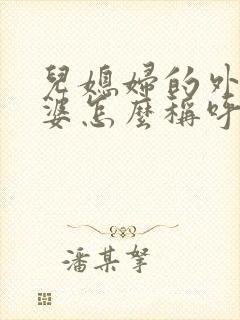 兒媳婦的外
婆怎麼稱呼
潘某拏